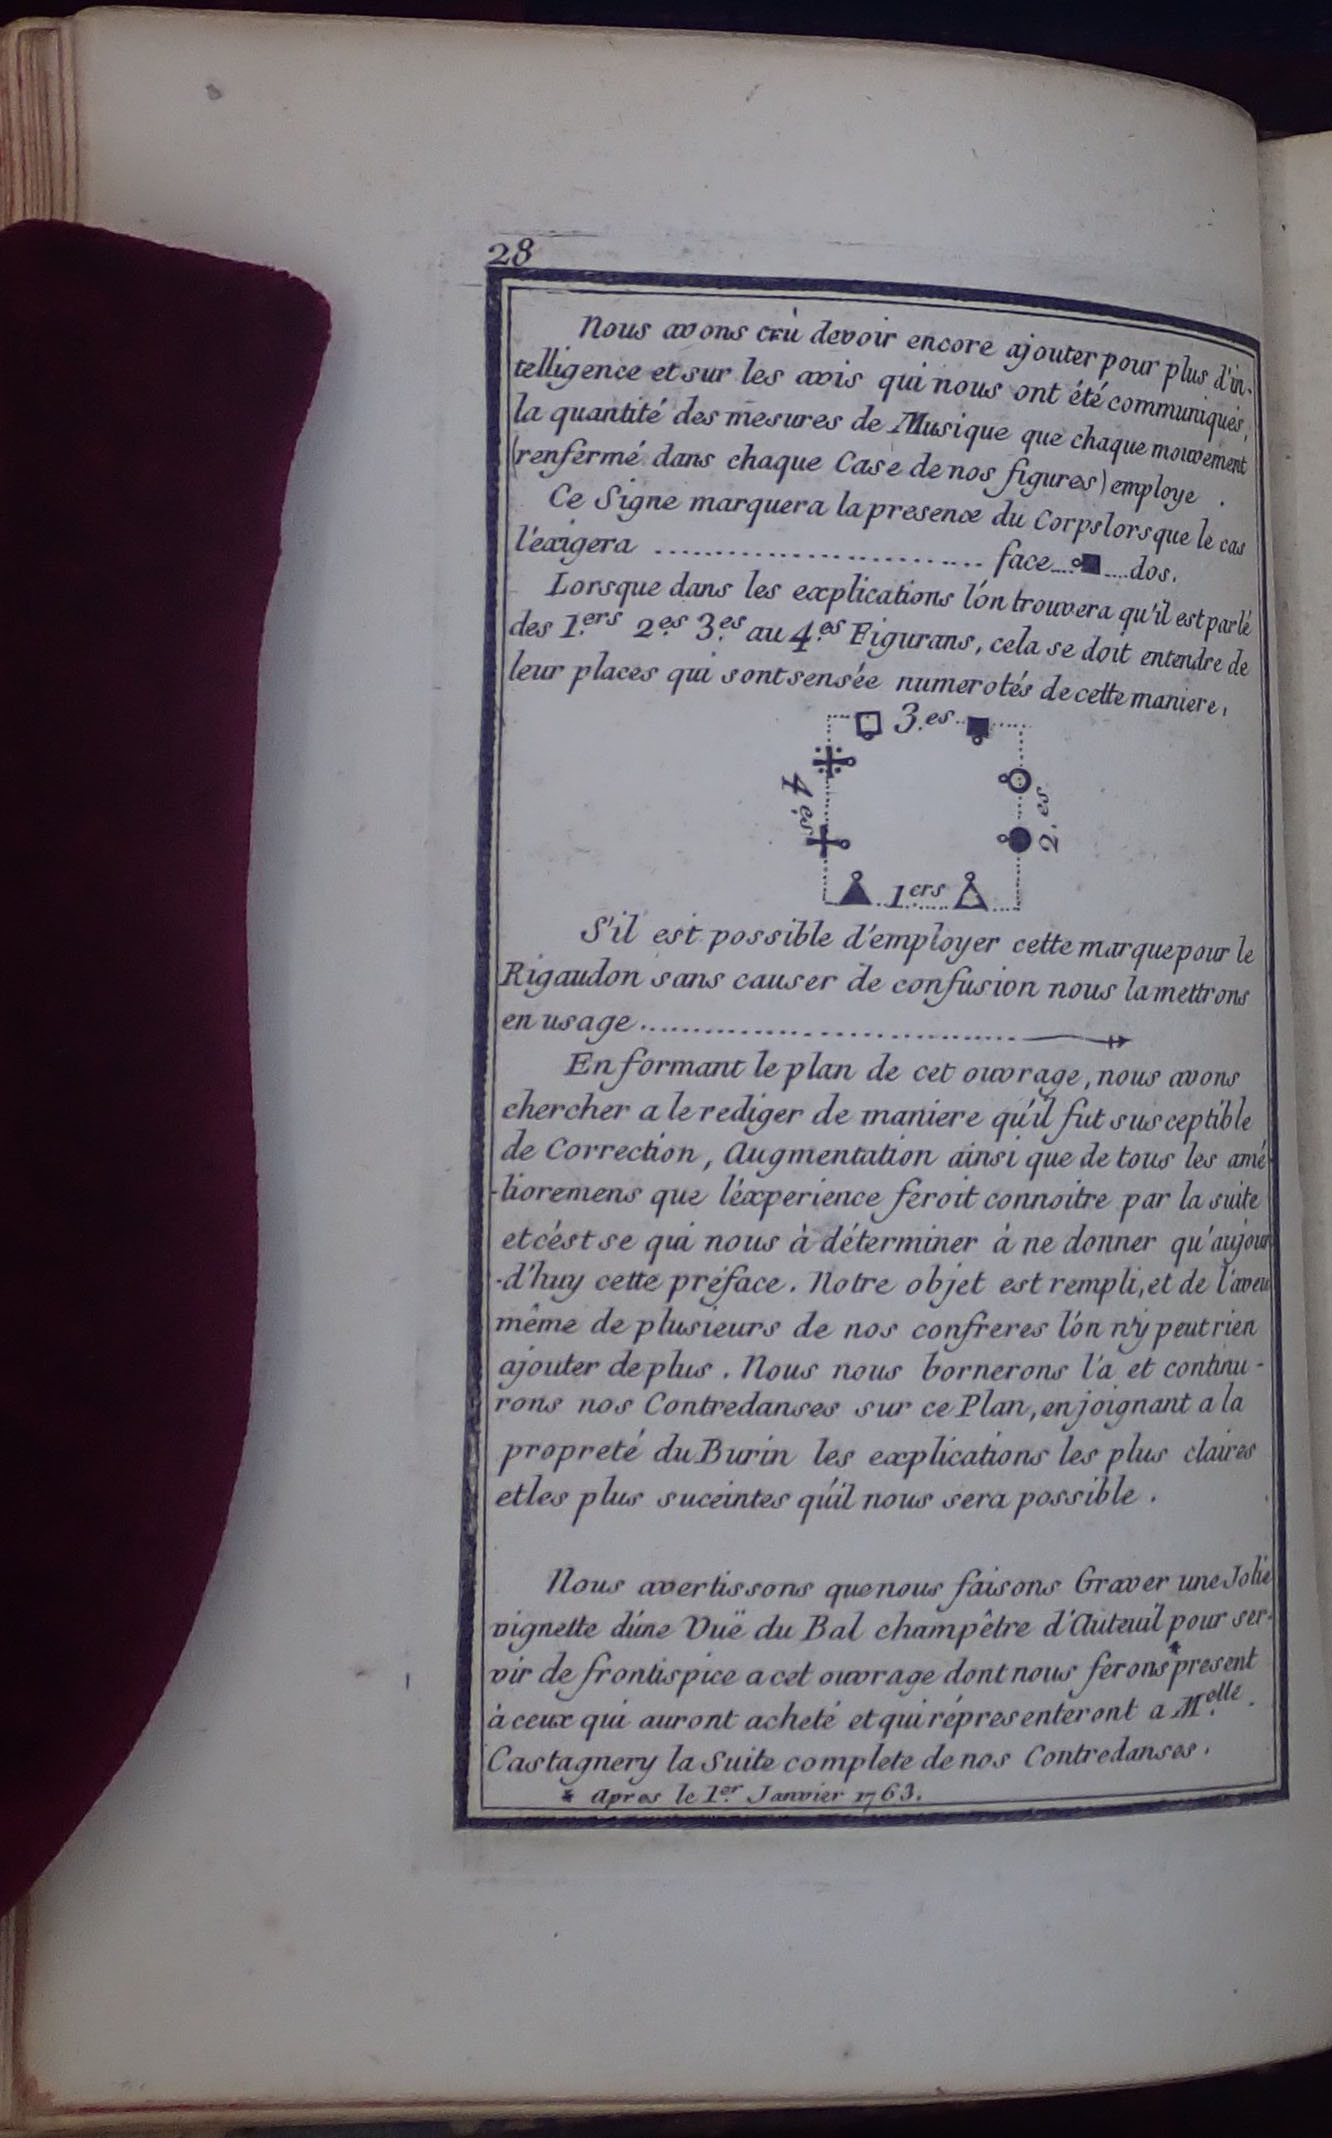 28
Nous avons crù devoir encore ajouter pour plus d'in-
telligence et sur les avis qui nous ont été communiqués,
la quantité des mesures de Musique que chaque mouvement
(renfermé dans chaque Case de nos figures) employe .
Ce Signe marquera la presence du Corps lorsque le cas
l'éxigera .......................... face .... .... dos.
Lorsque dans les explications l'ón trouvera qu'il est parlé
des 1.ers 2.es 3.es au 4.es Figurans, cela se doit entendre de
leur places qui sont sensée numerotés de cette maniere,
3.es
4.es
2.es
1ers
S'il est possible d'employer cette marque pour le
Rigaudon sans causer de confusion nous la mettrons
en usage ..............................
En formant le plan de cet ouvrage, nous avons
chercher a le rediger de maniere qu'il fut susceptible
de Correction, Augmentation ainsi que de tous les amé-
-lioremens que l'éxperience feroit connoitre par la suite
et cést se qui nous à déterminer à ne donner qu'aujour
-d'huy cette préface. Notre objet est rempli, et de l'aveu
même de plusieurs de nos confreres l'ón n'y peut rien
ajouter de plus . Nous nous bornerons l'a et continu-
rons nos Contredanses sur ce Plan, en joignant a la
propreté du Burin les explications les plus claires
et les plus suceintes qu'il nous sera possible .
Nous avertissons que nous faisons Graver une Jolie
vignette d'úne Vuë du Bal champêtre d'Auteuil pour ser-
vir de frontispice a cet ouvrage dont nous ferons * present
à ceux qui auront acheté et qui réprésenteront a M.elle
Castagnery la Suite complete de nos Contredanses.
* Apres le 1.er Janvier 1763.